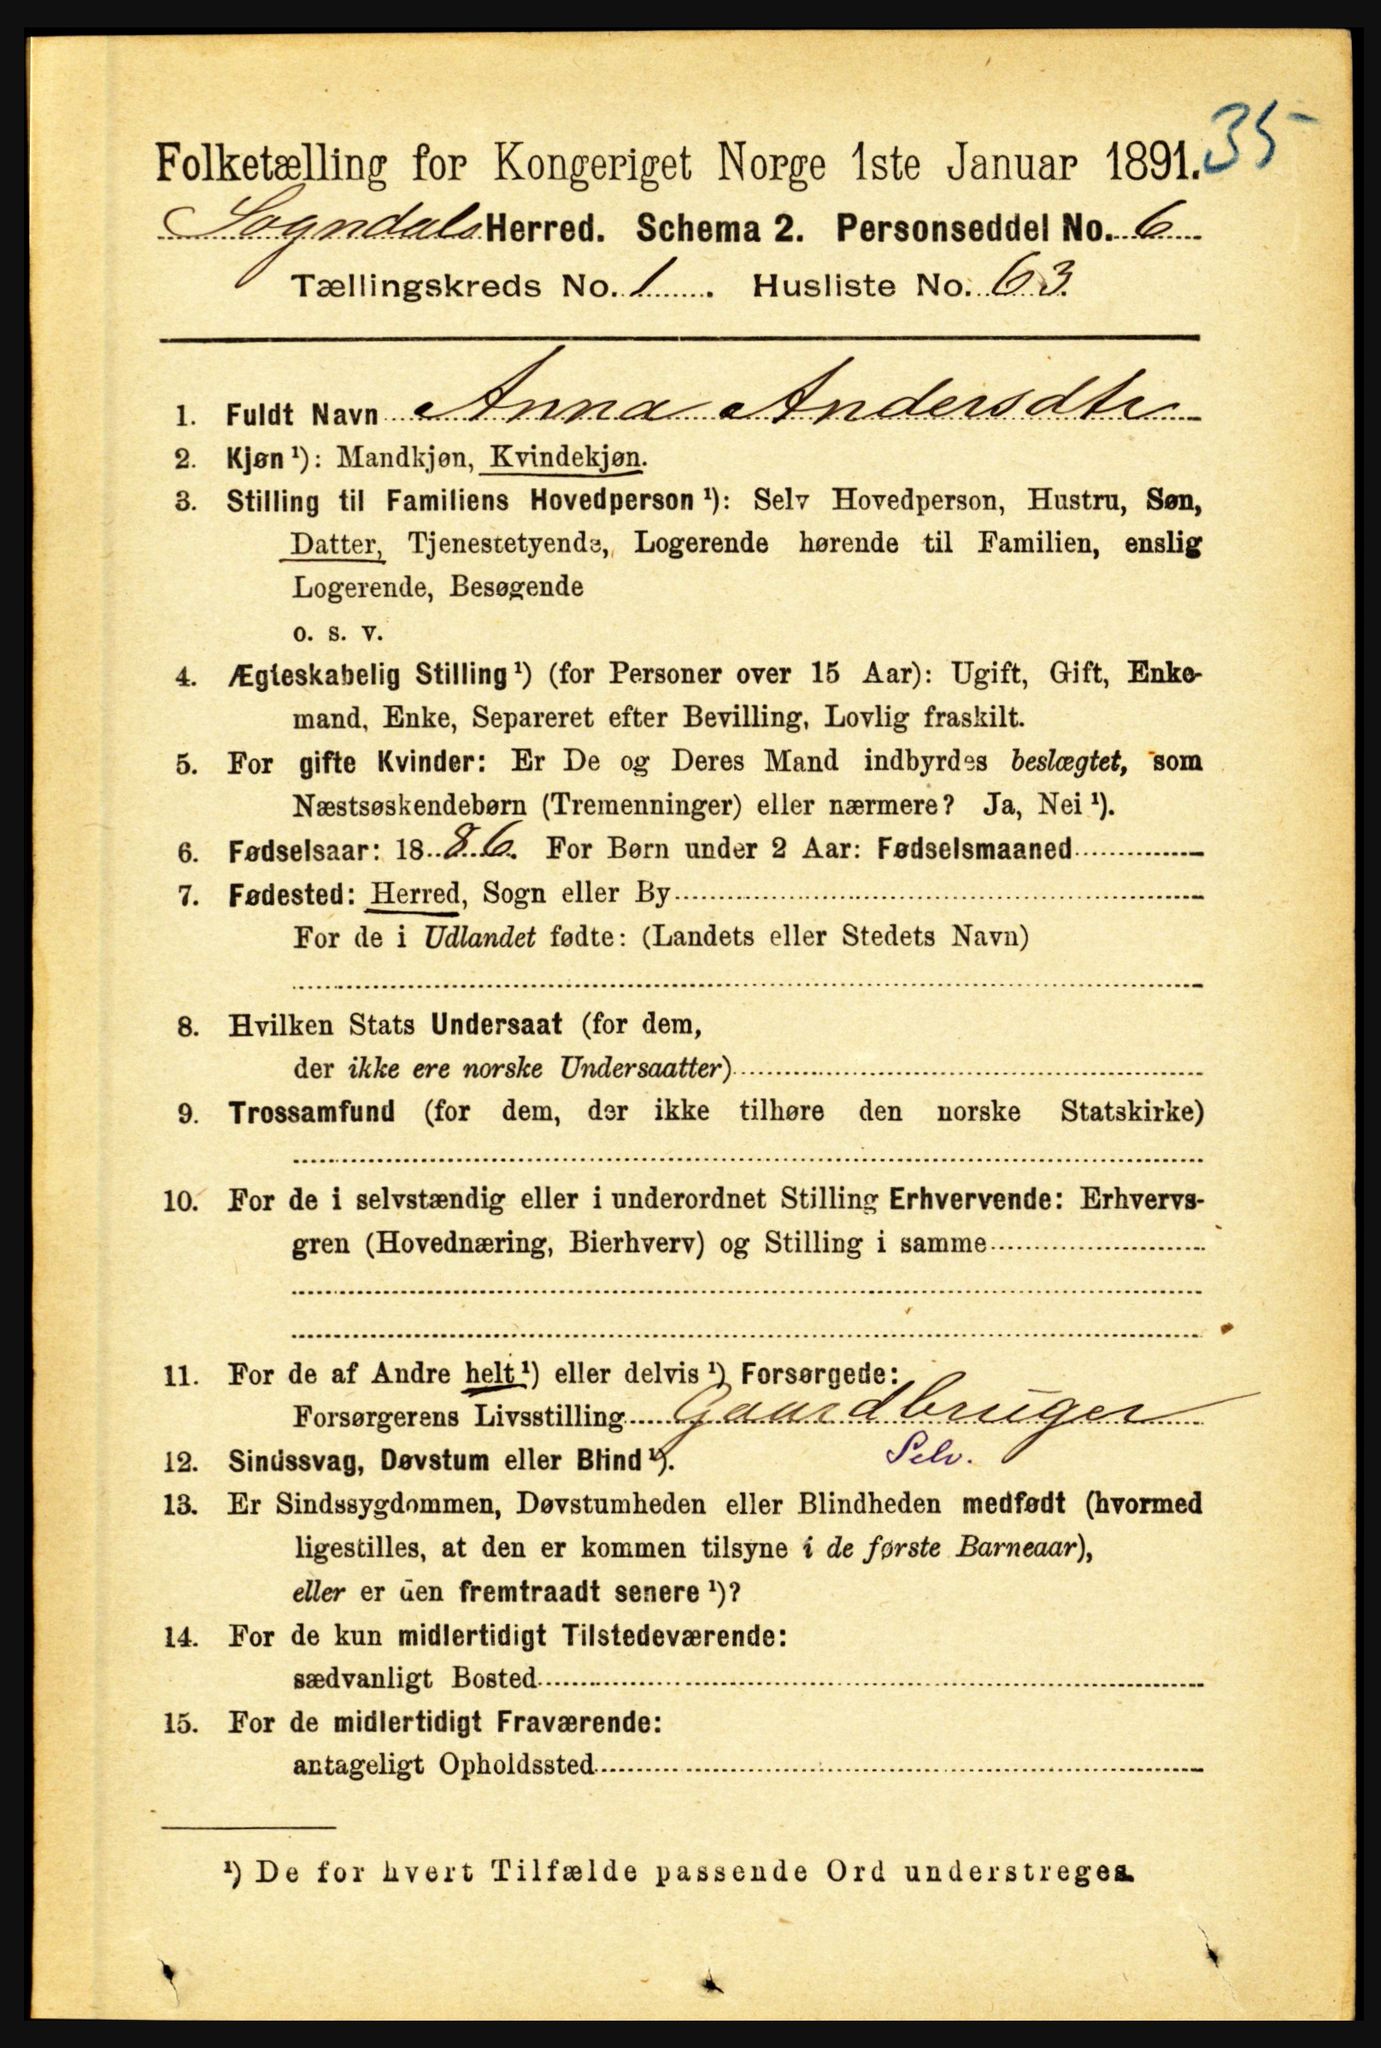 35
Folketælling for Kongeriget Norge 1ste Januar 1891.
Sogndals Herred. Schema 2. Personseddel No. 6
Tællingskreds No. 1. Husliste No. 63
1. Fuldt Navn Anna Andersdtr
2. Kjøn ¹): Mandkjøn, Kvindekjøn.
3. Stilling til Familiens Hovedperson ¹): Selv Hovedperson, Hustru, Søn,
Datter, Tjenestetyende, Logerende hørende til Familien, enslig
Logerende, Besøgende
o. s. v.
4. Ægteskabelig Stilling ¹) (for Personer over 15 Aar): Ugift, Gift, Enke-
mand, Enke, Separeret efter Bevilling, Lovlig fraskilt.
5. For gifte Kvinder: Er De og Deres Mand indbyrdes beslægtet, som
Næstsøskendebørn (Tremenninger) eller nærmere? Ja, Nei ¹).
6. Fødselsaar: 1886. For Børn under 2 Aar: Fødselsmaaned
7. Fødested: Herred, Sogn eller By
For de i Udlandet fødte: (Landets eller Stedets Navn)
8. Hvilken Stats Undersaat (for dem,
der ikke ere norske Undersaatter)
9. Trossamfund (for dem, der ikke tilhøre den norske Statskirke)
10. For de i selvstændig eller i underordnet Stilling Erhvervende: Erhvervs-
gren (Hovednæring, Bierhverv) og Stilling i samme
11. For de af Andre helt ¹) eller delvis ¹) Forsørgede:
Forsørgerens Livsstilling Gaardbruger
12. Sindssvag, Døvstum eller Blind ¹). Selv.
13. Er Sindssygdommen, Døvstumheden eller Blindheden medfødt (hvormed
ligestilles, at den er kommen tilsyne i de første Barneaar),
eller er den fremtraadt senere ¹)?
14. For de kun midlertidigt Tilstedeværende:
sædvanligt Bosted
15. For de midlertidigt Fraværende:
antageligt Opholdssted
¹) De for hvert Tilfælde passende Ord understreges.